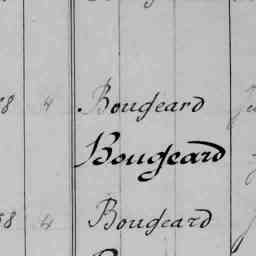 8 4 Bougeard
Bougeard
8 4 Bougeard